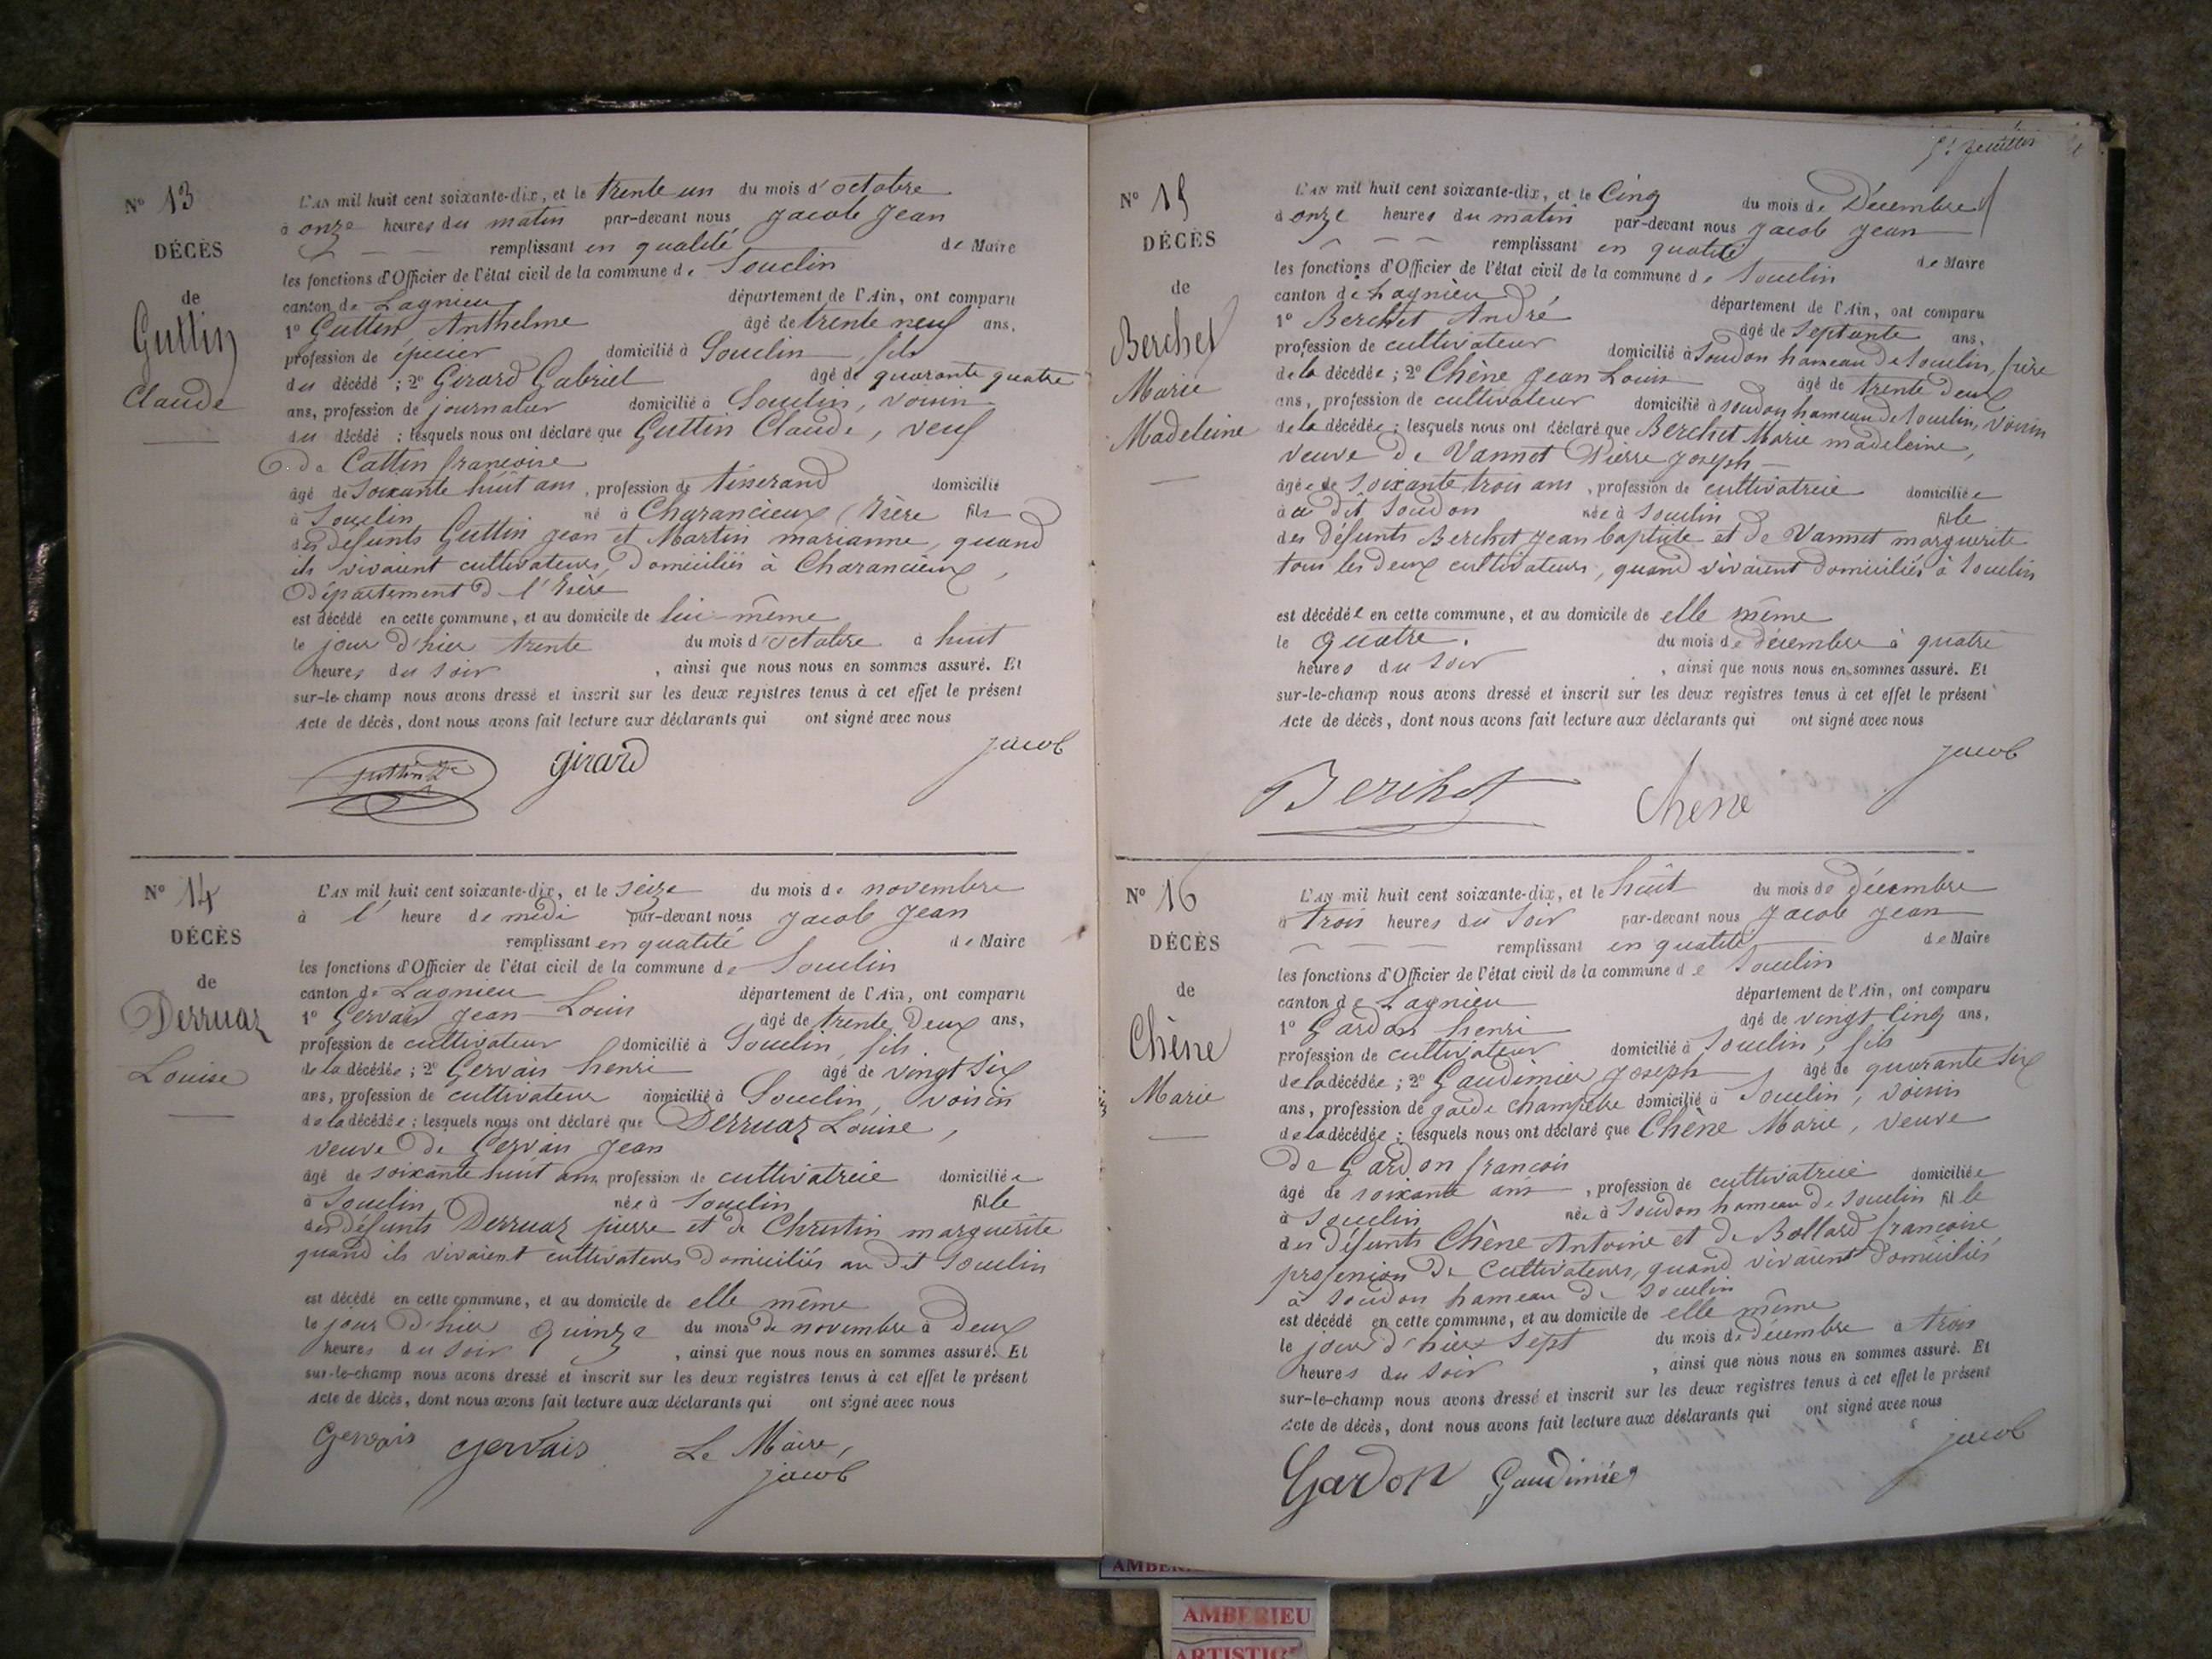 N° 13
DÉCÈS
de
Guttin
Claude
L'AN mil huit cent soixante-dix, et le trente un du mois d'octobre
à onze heures du matin par-devant nous Jacob Jean
remplissant en qualité de Maire
les fonctions d'Officier de l'état civil de la commune de Souclin
canton de Lagnieu département de l'Ain, ont comparu
1° Guttin Anthelme âgé de trente neuf ans,
profession de épicier domicilié à Souclin, fils
du décédé ; 2° Girard Gabriel âgé de quarante quatre
ans, profession de journalier domicilié à Souclin, voisin
du décédé : lesquels nous ont déclaré que Guttin Claude, veuf
de Cattin francoise
âgé de soixante huit ans, profession de tisserand domicilié
à Souclin né à Charancieux (Isère fils
des défunts Guttin Jean et Martin marianne, quand
ils vivaient cultivateurs, domiciliés à Charancieux,
Département de l'Isère
est décédé en cette commune, et au domicile de lui-même
le jour d'hier trente du mois d'octobre à huit
heures du soir, ainsi que nous nous en sommes assuré. Et
sur-le-champ nous avons dressé et inscrit sur les deux registres tenus à cet effet le présent
Acte de décès, dont nous avons fait lecture aux déclarants qui ont signé avec nous
guttin girard jacob
N° 14
DÉCÈS
de
Derruaz
Louise
L'AN mil huit cent soixante-dix, et le seize du mois de novembre
à l' heure de midi par-devant nous Jacob Jean
remplissant en qualité de Maire
les fonctions d'Officier de l'état civil de la commune de Souclin
canton de Lagnieu département de l'Ain, ont comparu
1° Gervais Jean-Louis âgé de trente deux ans,
profession de cultivateur domicilié à Souclin, fils
de la décédée ; 2° Gervais henri âgé de vingt six
ans, profession de cultivateur domicilié à Souclin, voisin
de la décédée : lesquels nous ont déclaré que Derruaz Louise,
veuve de Gervais Jean
âgé de soixante huit ans profession de cultivatrice domiciliée
à Souclin née à Souclin fille
des défunts Derruaz pierre et de Christin marguerite
quand ils vivaient cultivateurs domiciliés au dit Souclin
est décédé en cette commune, et au domicile de elle même
le jour d'hier quinze du mois de novembre à deux
heures du soir, ainsi que nous nous en sommes assuré. Et
sur-le-champ nous avons dressé et inscrit sur les deux registres tenus à cet effet le présent
Acte de décès, dont nous avons fait lecture aux déclarants qui ont signé avec nous
Gervais gervais Le Maire,
jacob
N° 15
DÉCÈS
de
Berchet
Marie
Madeleine
L'AN mil huit cent soixante-dix, et le Cinq du mois de Décembre
à onze heures du matin par-devant nous Jacob Jean
remplissant en qualité de Maire
les fonctions d'Officier de l'état civil de la commune de Souclin
canton de Lagnieu département de l'Ain, ont comparu
1° Berchet André âgé de septante ans,
profession de cultivateur domicilié à Soudon hameau de Souclin, frère
de la décédée ; 2° Chêne Jean Louis âgé de trente deux
ans, profession de cultivateur domicilié à Soudon hameau de Souclin, voisin
de la décédée ; lesquels nous ont déclaré que Berchet Marie madeleine,
veuve de Vannet Pierre joseph
âgée de soixante trois ans, profession de cultivatrice domiciliée
à dit Soudon née à Souclin fille
des défunts Berchet Jean baptiste et de Vannet marguerite
tous les deux cultivateurs, quand vivaient domiciliés à Souclin
est décédée en cette commune, et au domicile de elle même
le quatre. du mois de décembre à quatre
heures du soir, ainsi que nous nous en sommes assuré. Et
sur-le-champ nous avons dressé et inscrit sur les deux registres tenus à cet effet le présent
Acte de décès, dont nous avons fait lecture aux déclarants qui ont signé avec nous
Berchet Chene jacob
N° 16
DÉCÈS
de
Chêne
Marie
L'AN mil huit cent soixante-dix, et le huit du mois de décembre
à trois heures du soir par-devant nous Jacob Jean
remplissant en qualité de Maire
les fonctions d'Officier de l'état civil de la commune de Souclin
canton de Lagnieu département de l'Ain, ont comparu
1° Gardon henri âgé de vingt cinq ans,
profession de cultivateur domicilié à Souclin, fils
de la décédée ; 2° Gaudimier Joseph âgé de quarante six
ans, profession de garde champêtre domicilié à Souclin, voisin
de la décédée ; lesquels nous ont déclaré que Chêne Marie, veuve
de Gardon françois
âgé de soixante ans, profession de cultivatrice domiciliée
à Souclin née à Soudon hameau de Souclin fille
des défunts Chêne Antoine et de Bollard francoise
profession de Cultivateurs, quand vivaient domiciliés
à Soudon hameau de Souclin
est décédé en cette commune, et au domicile de elle même
le jour d'hier sept du mois de décembre à trois
heures du soir, ainsi que nous nous en sommes assuré. Et
sur-le-champ nous avons dressé et inscrit sur les deux registres tenus à cet effet le présent
Acte de décès, dont nous avons fait lecture aux déclarants qui ont signé avec nous
Gardon Gaudimier jacob
AMBERIEU
ARTISTIQUE